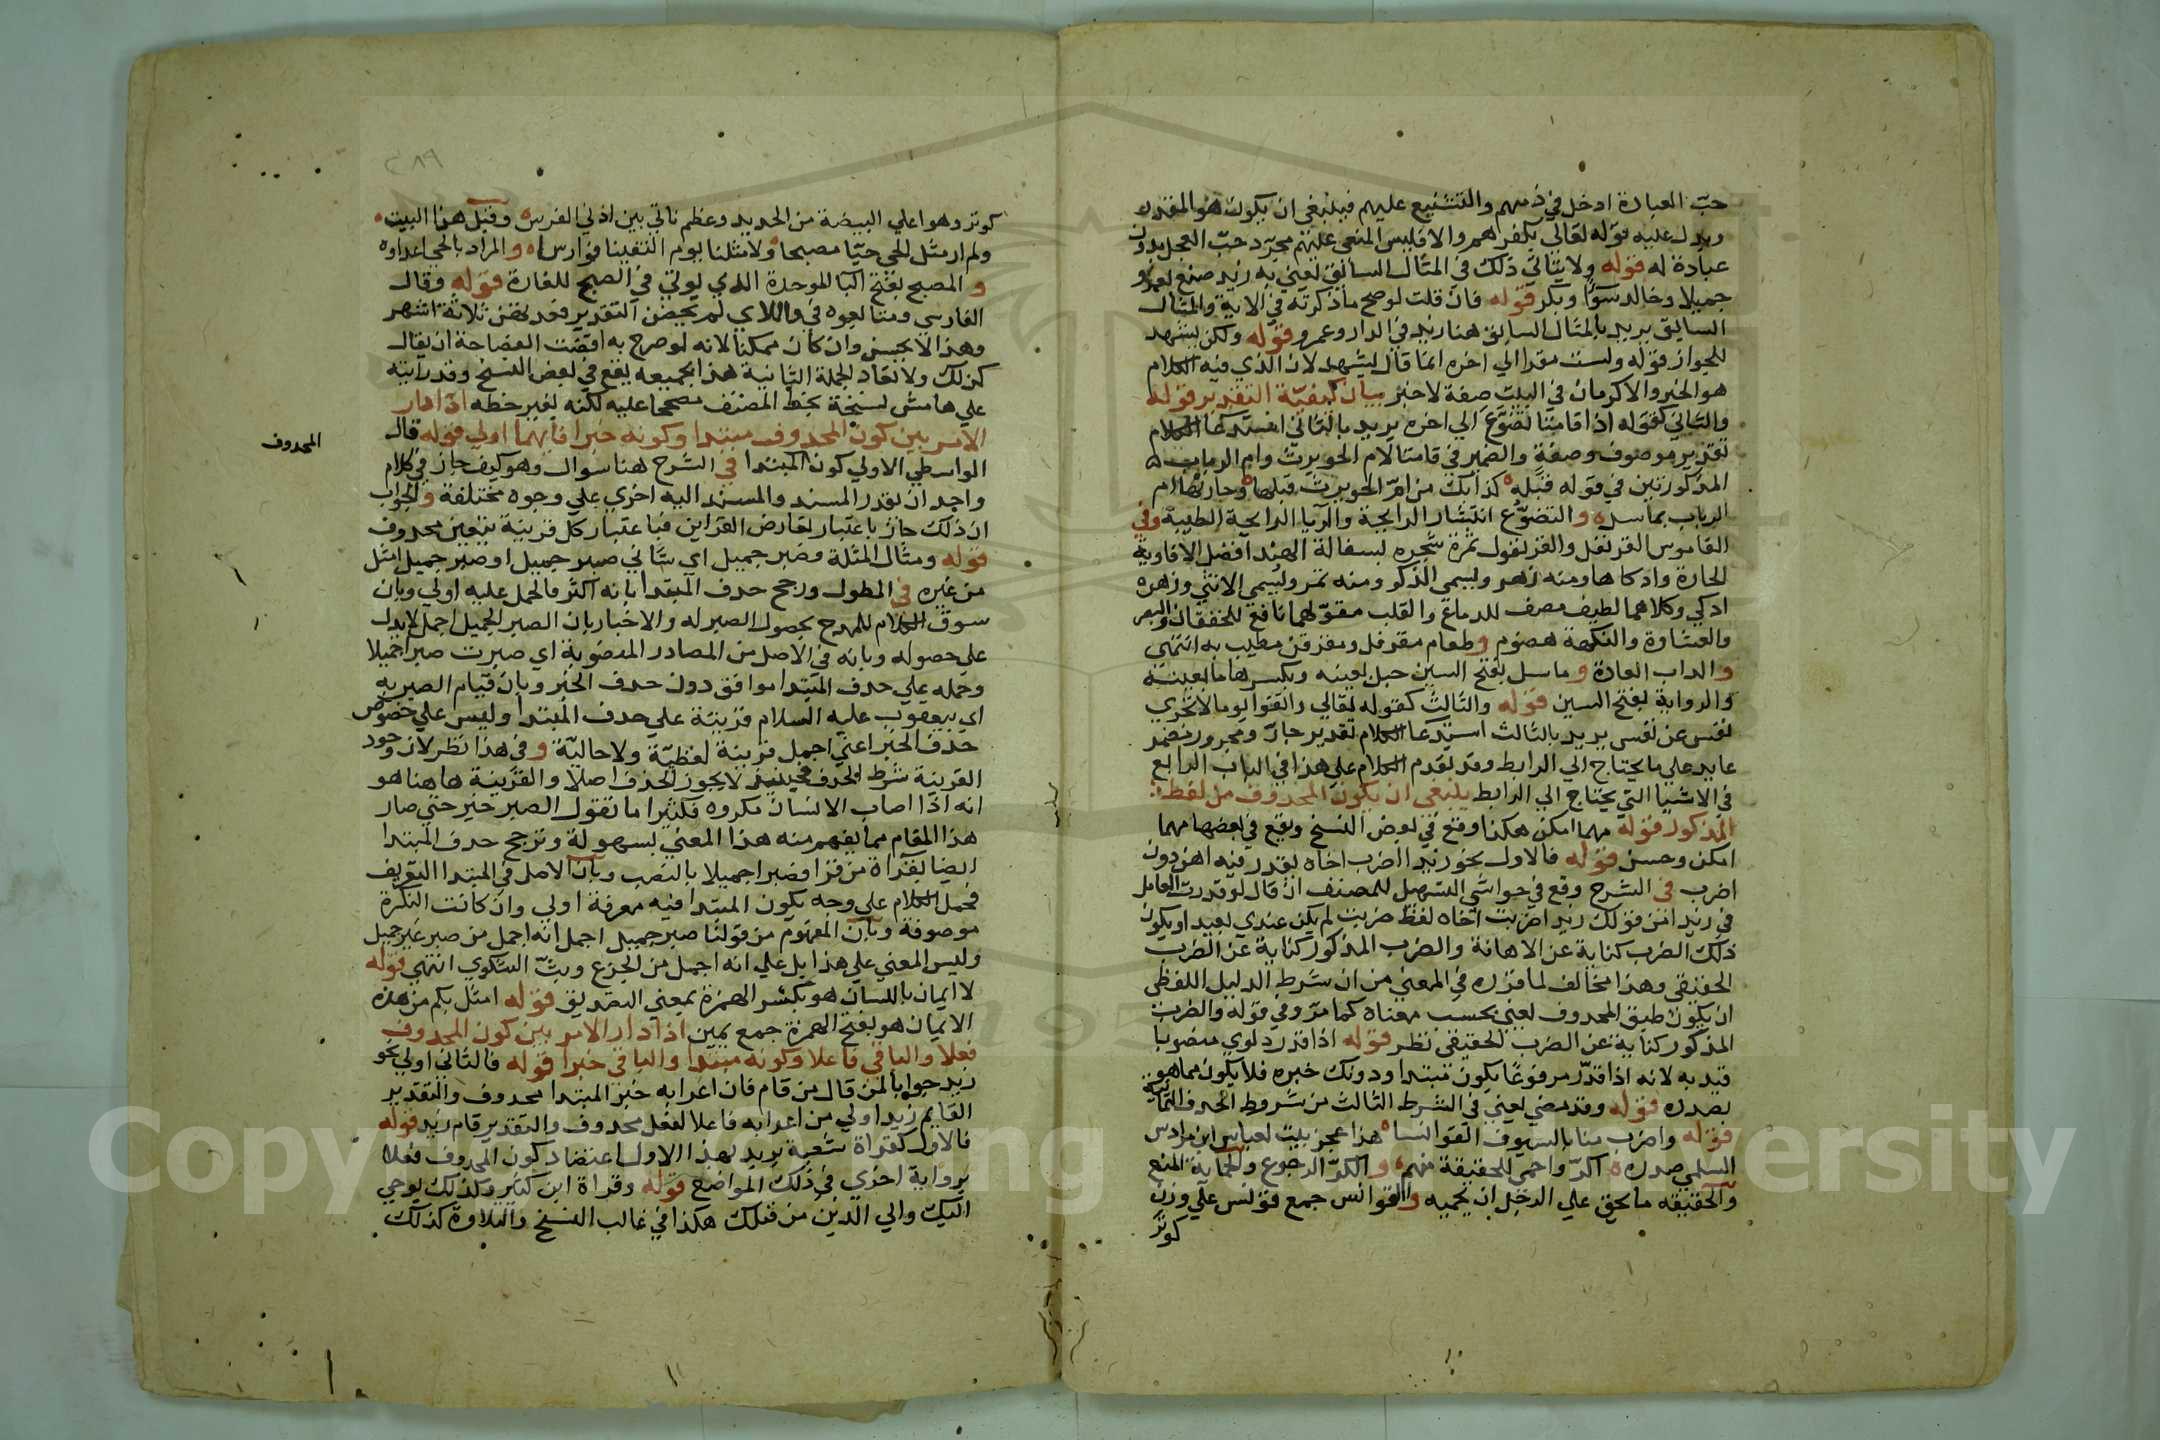 حبّ العبادة ادخل في ذمهم والتشنيع عليهم فينبغي ان يكون هو المقدر
ويدل عليه قوله تعالى بكفرهم والا فليس المنعي عليهم مجرد حبّ العجل بدون
عبادة له قوله ولا يتاتي ذلك في المثال السابق يعني به زيد صنع بعمرو
جميلا وخالد سوًا وبكر قوله فان قلت لو صح ما ذكرته في الاية والمثال
السابق يريد بالمثال السابق هنا زيد في الدار وعمرو قوله ولكن يشهد
للجواز قوله ولست مقرا الي اخره انما قال يشهد لان الذي فيه الكلام
هو الخبر والاكرمان في البيت صفة لا خبر بيان كيفيّة التقدير قوله
والثاني كقوله اذا قامتا تضوّع الي اخره يريد بالثاني استدعا الكلام
تقدير موصوف وصفة والضمير في قامتا لام الحويرث وام الرباب
المذكورتين في قوله قبله كدابك من امّ الحويرث قبلها وجارتها ام
الرباب بماسل والتضوّع انتشار الرايحة والرّيا الرايحة الطيبة وفي
القاموس القرنفل والقرنفول ثمرة شجره بسفالة الهند افضل الافاوية
الحارة واذكاها ومنه زهر ويسمي الذّكر ومنه ثمر ويسمي الانثي وزهره
اذكي وكلاهما لطيف مصف للدماغ والقلب مقوّ لهما نافع للخفقان والبصر
والغشاوة والنكهة هضوم وطعام مقرفل ومقرفن مطيب به انتهي
والداب العادة وماسل بفتح السين جبل بعينه وبكسرها ما بعينه
والرواية بفتح السين قوله والثالث كقوله تعالي واتقوا يوما لا تجزي
نفس عن نفس يريد بالثالث استدعا الكلام تقدير جارّ ومجرور مضمر
عايد علي ما يحتاج الي الرابط وقد تقدم الكلام علي هذا في الباب الرابع
في الاشيا التي يحتاج الي الرابط ينبغي ان يكون المحذوف من لفظ
المذكور قوله مهما امكن هكذا وقع في بعض النسخ ويقع في بعضها مهما
امكن وحسن قوله فالاول نحو زيدا اضرب اخاه يقدر فيه اهن دون
اضرب في الشرح وقع في حواشي التسهيل للمصنف ان قال لو قدرت العامل
في زيدا من قولك زيدا ضربت اخاه لفظ ضربت لم يكن عندي بعيدا ويكون
ذلك الضرب كناية عن الاهانة والضرب المذكور كناية عن الضرب
الحقيقي وهذا مخالف لما قرره في المغني من ان شرط الدليل اللفظي
ان يكون طبق المحذوف يعني بحسب معناه كما مرّ وفي قوله والضرب
المذكور كناية عن الضرب الحقيقي نظر قوله اذا قدر دلوي منصوبا
قيد به لانه اذا قدّر مرفوعًا يكون مبتدا ودونك خبره فلا يكون مما هو
بصدده قوله وقد مضي يعني في الشرط الثالث من شروط الحذف الثمانية
قوله واضرب منا بالسيوف القوانسا هذا عجز بيت لعباس ابن مرداس
السلمي صدره اكرّ واحمي للحقيقة منهم والكرّ الرجوع والحماية المنع
والحقيقه ما يحق علي الرجل ان يحميه والقوانس جمع قونس علي وزن
كوثر
كوثر وهو اعلي البيضة من الحديد وعظم ناتي بين اذني الفرس وقبل هذا البيت
ولم ار مثل الحي حيّا مصبحا ولا مثلنا يوم التقينا فوارسا والمراد بالحي اعداوه
والمصبح بفتح البا الموحدة الذي يوتي في الصبح للغارة قوله وقال
الفارسي ومتابعوه في واللاي لم يحضن التقدير فعدتهن ثلاثة اشهر
وهذا لا يحسن وان كان ممكنا لانه لو صرح به اقتضت الفصاحة ان يقال
كذلك ولا تعاد الجملة الثانية هذا بجميعه يقع في بعض النسخ وقد رايته
علي هامش نسخة بخط المصنف مصححا عليه لكنه بغير خطه اذا دار
الامر بين كون المحذوف مبتدا وكونه خبرا فايهما اولي قوله قال
المحذوف
الواسطي الاولي كون المبتدا في الشرح هنا سوال وهو كيف جاز في كلام
واحد ان يقدر المسند والمسند اليه اخري علي وجوه مختلفة والجواب
ان ذلك جاز باعتبار تعارض القراين فباعتبار كل قرينة يتعين محذوف
قوله ومثال المثلة وصبر جميل اي شاني صبر جميل او صبر جميل امثل
من غيره في المطول ورجح حذف المبتدا بانه اكثر فالحمل عليه اولي وبان
سوق الكلام للمدح بحصول الصبر له والاخبار بان الصبر الجميل اجمل لا يدل
علي حصوله وبانه في الاصل من المصادر المنصوبة اي صبرت صبرا جميلا
وحمله علي حذف المبتدا موافق دون حذف الخبر وبان قيام الصبر به
اي بيعقوب عليه السلام قرينة علي حذف المبتدا وليس علي خصوص
حذف الخبر اعني اجمل قرينة لفظيّة ولا حاليّة وفي هذا نظر لان وجود
القرينة شرط الحذف فحينيذ لا يجوز الحذف اصلا والقرينة هاهنا هو
انه اذا اصاب الانسان مكروه فكثيرا ما تقول الصبر خير حتي صار
هذا المقام مما يفهم منه هذا المعني بسهولة وترجح حذف المبتدا
ايضا بقراة من قرا فصبرا جميلا بالنصب وبان الاصل في المبتدا التعريف
فحمل الكلام علي وجه يكون المبتدا فيه معرفة اولي وان كانت النكرة
موصوفة وبان المفهوم من قولنا صبر جميل اجمل انه اجمل من صبر غير جميل
وليس المعني علي هذا بل علي انه اجمل من الجزع وبثّ الشكوي انتهي قوله
لا ايمان باللسان هو بكسر الهمزة بمعني التصديق قوله امثل بكم من هذه
الايمان هو بفتح الهمزة جمع يمين اذا دار الامر بين كون المحذوف
فعلا والباقي فاعلا وكونه مبتدا والباقي خبرا قوله فالثاني اولي نحو
زيد جوابا لمن قال من قام فان اعرابه خبر المبتدا محذوف والتقدير
القايم زيد اولي من اعرابه فاعلا لفعل محذوف والتقدير قام زيد قوله
فالاول كقراة شعبة يريد بهذا الاول اعتضاد كون المحذوف فعلا
برواية اخري في ذلك المواضع قوله وقراة ابن كثير وكذلك يوحي
اليك والي الذين من قبلك هكذا في غالب النسخ والتلاوة كذلك
٢٨٩